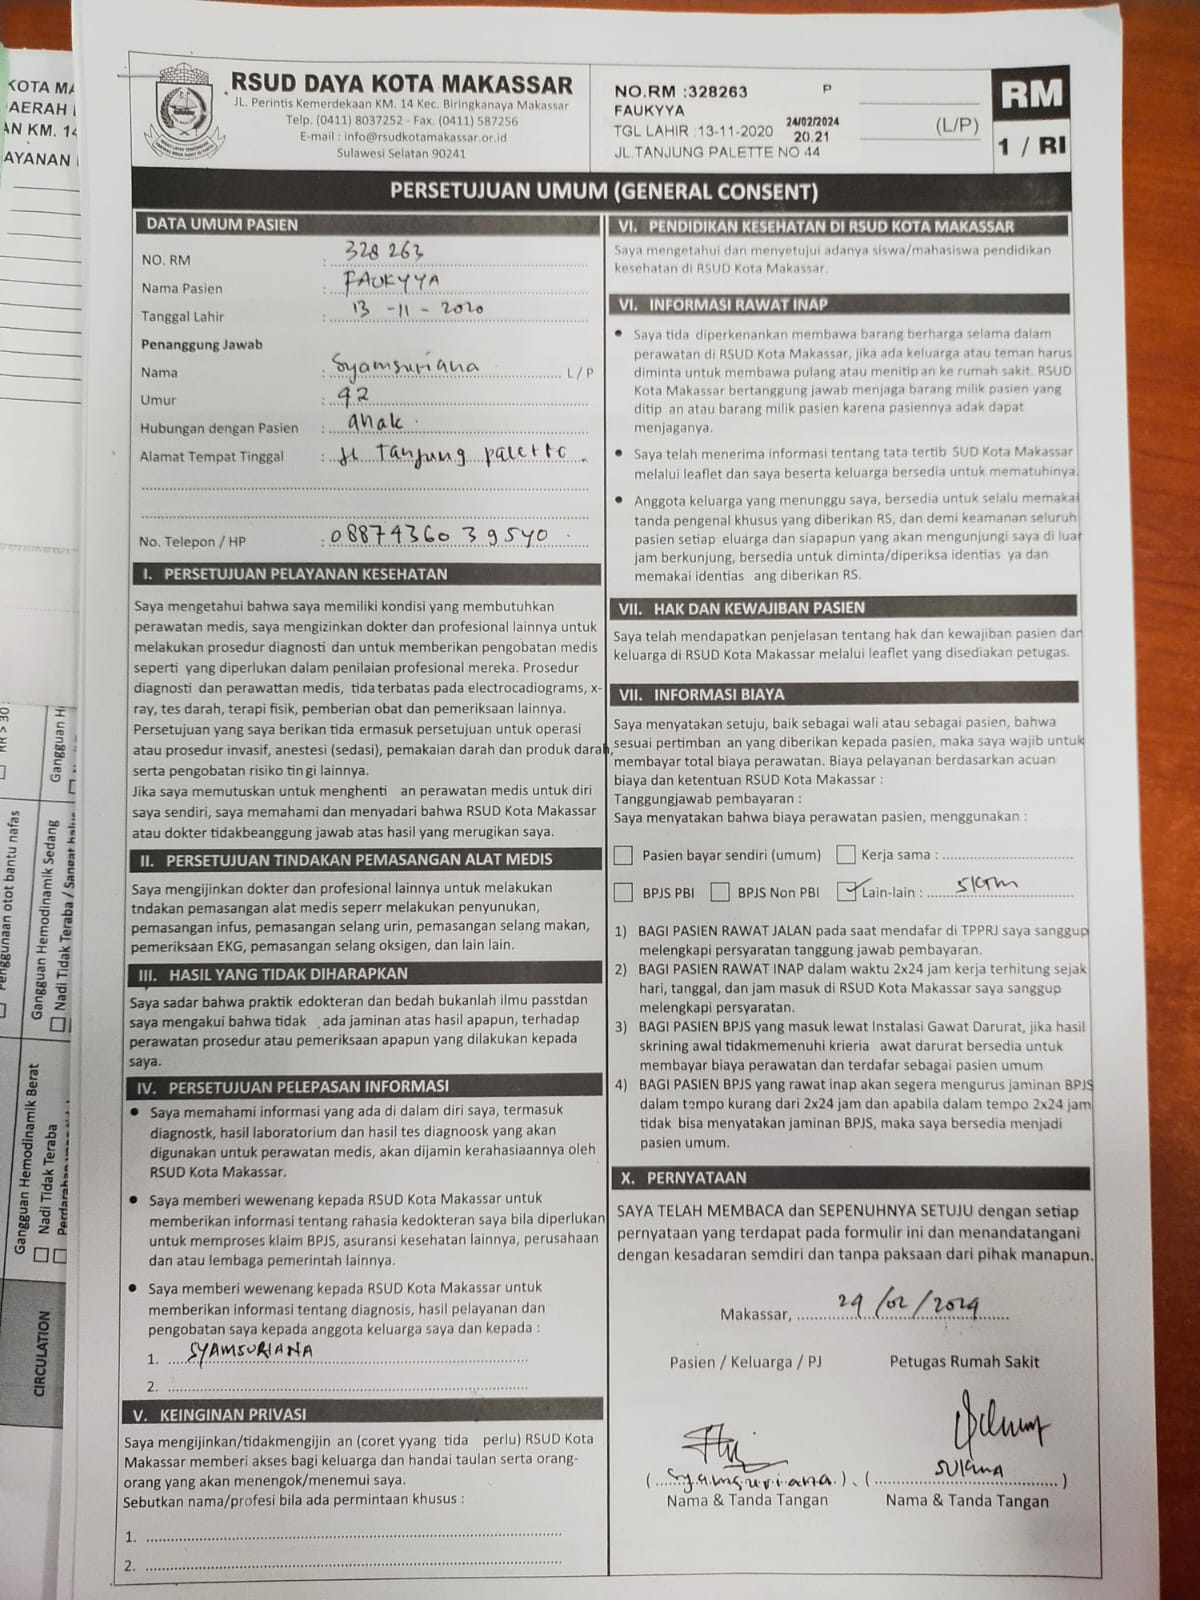 KOTA MA
AERAH
AN KM. 14
AYANAN
RSUD DAYA KOTA MAKASSAR
JL. Perintis Kemerdekaan KM. 14 Kec. Biringkanaya Makassar
Telp. (0411) 8037252 - Fax. (0411) 587256
E-mail : info@rsudkotamakassar.or.id
Sulawesi Selatan 90241
NO.RM :328263 P
FAUKYYA
TGL LAHIR :13-11-2020 24/02/2024 20.21
JL.TANJUNG PALETTE NO 44
(L/P)
RM
1 / RI
PERSETUJUAN UMUM (GENERAL CONSENT)
DATA UMUM PASIEN
NO. RM : 328 263
Nama Pasien : FAUKYYA
Tanggal Lahir : 13 - 11 - 2020
Penanggung Jawab
Nama : Syamsuriana L / P
Umur : 42
Hubungan dengan Pasien : anak
Alamat Tempat Tinggal : Jl Tanjung palette
No. Telepon / HP : 0887436039540
I. PERSETUJUAN PELAYANAN KESEHATAN
Saya mengetahui bahwa saya memiliki kondisi yang membutuhkan
perawatan medis, saya mengizinkan dokter dan profesional lainnya untuk
melakukan prosedur diagnosti dan untuk memberikan pengobatan medis
seperti yang diperlukan dalam penilaian profesional mereka. Prosedur
diagnosti dan perawattan medis, tida terbatas pada electrocadiograms, x-
ray, tes darah, terapi fisik, pemberian obat dan pemeriksaan lainnya.
Persetujuan yang saya berikan tida ermasuk persetujuan untuk operasi
atau prosedur invasif, anestesi (sedasi), pemakaian darah dan produk darah,
serta pengobatan risiko tin gi lainnya.
Jika saya memutuskan untuk menghenti an perawatan medis untuk diri
saya sendiri, saya memahami dan menyadari bahwa RSUD Kota Makassar
atau dokter tidakbeanggung jawab atas hasil yang merugikan saya.
II. PERSETUJUAN TINDAKAN PEMASANGAN ALAT MEDIS
Saya mengijinkan dokter dan profesional lainnya untuk melakukan
tndakan pemasangan alat medis seperr melakukan penyunukan,
pemasangan infus, pemasangan selang urin, pemasangan selang makan,
pemeriksaan EKG, pemasangan selang oksigen, dan lain lain.
III. HASIL YANG TIDAK DIHARAPKAN
Saya sadar bahwa praktik edokteran dan bedah bukanlah ilmu passtdan
saya mengakui bahwa tidak ada jaminan atas hasil apapun, terhadap
perawatan prosedur atau pemeriksaan apapun yang dilakukan kepada
saya.
IV. PERSETUJUAN PELEPASAN INFORMASI
● Saya memahami informasi yang ada di dalam diri saya, termasuk
diagnostk, hasil laboratorium dan hasil tes diagnoosk yang akan
digunakan untuk perawatan medis, akan dijamin kerahasiaannya oleh
RSUD Kota Makassar.
● Saya memberi wewenang kepada RSUD Kota Makassar untuk
memberikan informasi tentang rahasia kedokteran saya bila diperlukan
untuk memproses klaim BPJS, asuransi kesehatan lainnya, perusahaan
dan atau lembaga pemerintah lainnya.
● Saya memberi wewenang kepada RSUD Kota Makassar untuk
memberikan informasi tentang diagnosis, hasil pelayanan dan
pengobatan saya kepada anggota keluarga saya dan kepada :
1. SYAMSURIANA
2.
V. KEINGINAN PRIVASI
Saya mengijinkan/tidakmengijin an (coret yyang tida perlu) RSUD Kota
Makassar memberi akses bagi keluarga dan handai taulan serta orang-
orang yang akan menengok/menemui saya.
Sebutkan nama/profesi bila ada permintaan khusus :
1.
2.
VI. PENDIDIKAN KESEHATAN DI RSUD KOTA MAKASSAR
Saya mengetahui dan menyetujui adanya siswa/mahasiswa pendidikan
kesehatan di RSUD Kota Makassar.
VI. INFORMASI RAWAT INAP
● Saya tida diperkenankan membawa barang berharga selama dalam
perawatan di RSUD Kota Makassar, jika ada keluarga atau teman harus
diminta untuk membawa pulang atau menitip an ke rumah sakit. RSUD
Kota Makassar bertanggung jawab menjaga barang milik pasien yang
ditip an atau barang milik pasien karena pasiennya adak dapat
menjaganya.
● Saya telah menerima informasi tentang tata tertib SUD Kota Makassar
melalui leaflet dan saya beserta keluarga bersedia untuk mematuhinya.
● Anggota keluarga yang menunggu saya, bersedia untuk selalu memakai
tanda pengenal khusus yang diberikan RS, dan demi keamanan seluruh
pasien setiap eluarga dan siapapun yang akan mengunjungi saya di luar
jam berkunjung, bersedia untuk diminta/diperiksa identias ya dan
memakai identias ang diberikan RS.
VII. HAK DAN KEWAJIBAN PASIEN
Saya telah mendapatkan penjelasan tentang hak dan kewajiban pasien dan
keluarga di RSUD Kota Makassar melalui leaflet yang disediakan petugas.
VII. INFORMASI BIAYA
Saya menyatakan setuju, baik sebagai wali atau sebagai pasien, bahwa
sesuai pertimban an yang diberikan kepada pasien, maka saya wajib untuk
membayar total biaya perawatan. Biaya pelayanan berdasarkan acuan
biaya dan ketentuan RSUD Kota Makassar :
Tanggungjawab pembayaran :
Saya menyatakan bahwa biaya perawatan pasien, menggunakan :
Pasien bayar sendiri (umum) Kerja sama :
BPJS PBI BPJS Non PBI ✓ Lain-lain : SKTM
1) BAGI PASIEN RAWAT JALAN pada saat mendafar di TPPRJ saya sanggup
melengkapi persyaratan tanggung jawab pembayaran.
2) BAGI PASIEN RAWAT INAP dalam waktu 2x24 jam kerja terhitung sejak
hari, tanggal, dan jam masuk di RSUD Kota Makassar saya sanggup
melengkapi persyaratan.
3) BAGI PASIEN BPJS yang masuk lewat Instalasi Gawat Darurat, jika hasil
skrining awal tidakmemenuhi krieria awat darurat bersedia untuk
membayar biaya perawatan dan terdafar sebagai pasien umum
4) BAGI PASIEN BPJS yang rawat inap akan segera mengurus jaminan BPJS
dalam tempo kurang dari 2x24 jam dan apabila dalam tempo 2x24 jam
tidak bisa menyatakan jaminan BPJS, maka saya bersedia menjadi
pasien umum.
X. PERNYATAAN
SAYA TELAH MEMBACA dan SEPENUHNYA SETUJU dengan setiap
pernyataan yang terdapat pada formulir ini dan menandatangani
dengan kesadaran semdiri dan tanpa paksaan dari pihak manapun.
Makassar, 24/02/2024
Pasien / Keluarga / PJ Petugas Rumah Sakit
(Syamsuriana) (SUKMA)
Nama & Tanda Tangan Nama & Tanda Tangan
RR > 30
Gangguan H
Penggunaan otot bantu nafas
Gangguan Hemodinamik Sedang
Nadi Tidak Teraba / Sangat halus
Gangguan Hemodinamik Berat
Nadi Tidak Teraba
CIRCULATION